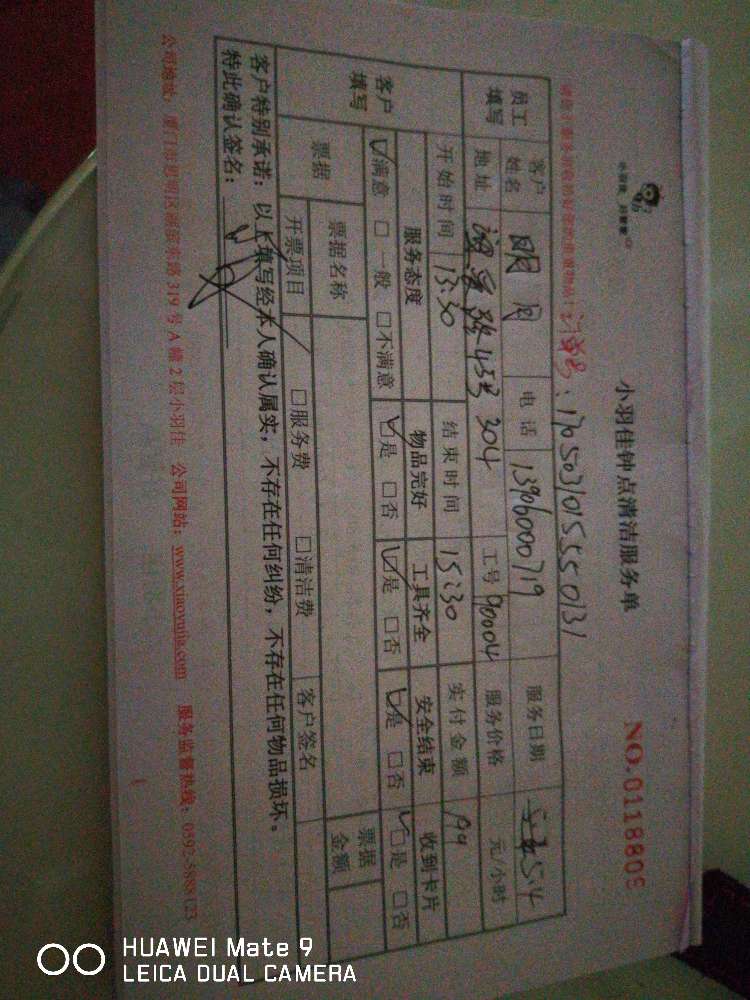 小羽佳钟点清洁服务单
NO.0118809
订单号：17050310155550131
员工填写
客户姓名 明月 电话 13906000719 服务日期 5.4
地址 304 工号 90004 服务价格 元/小时
开始时间 13:30 结束时间 15:30 实付金额
客户填写
服务态度 物品完好 工具齐全 安全结束 收到卡片
☑满意 □一般 □不满意 ☑是 □否 ☑是 □否 ☑是 □否 ☑是 □否
票据 票据名称 票据金额
开票项目 □服务费 □清洁费 客户签名
客户特别承诺：以上填写经本人确认属实，不存在任何纠纷，不存在任何物品损坏。
特此确认签名：
公司地址：厦门市思明区湖滨东路319号A幢2层小羽佳 公司网站：www.xiaoyujia.com 服务监督热线：0592-5888123
HUAWEI Mate 9
LEICA DUAL CAMERA